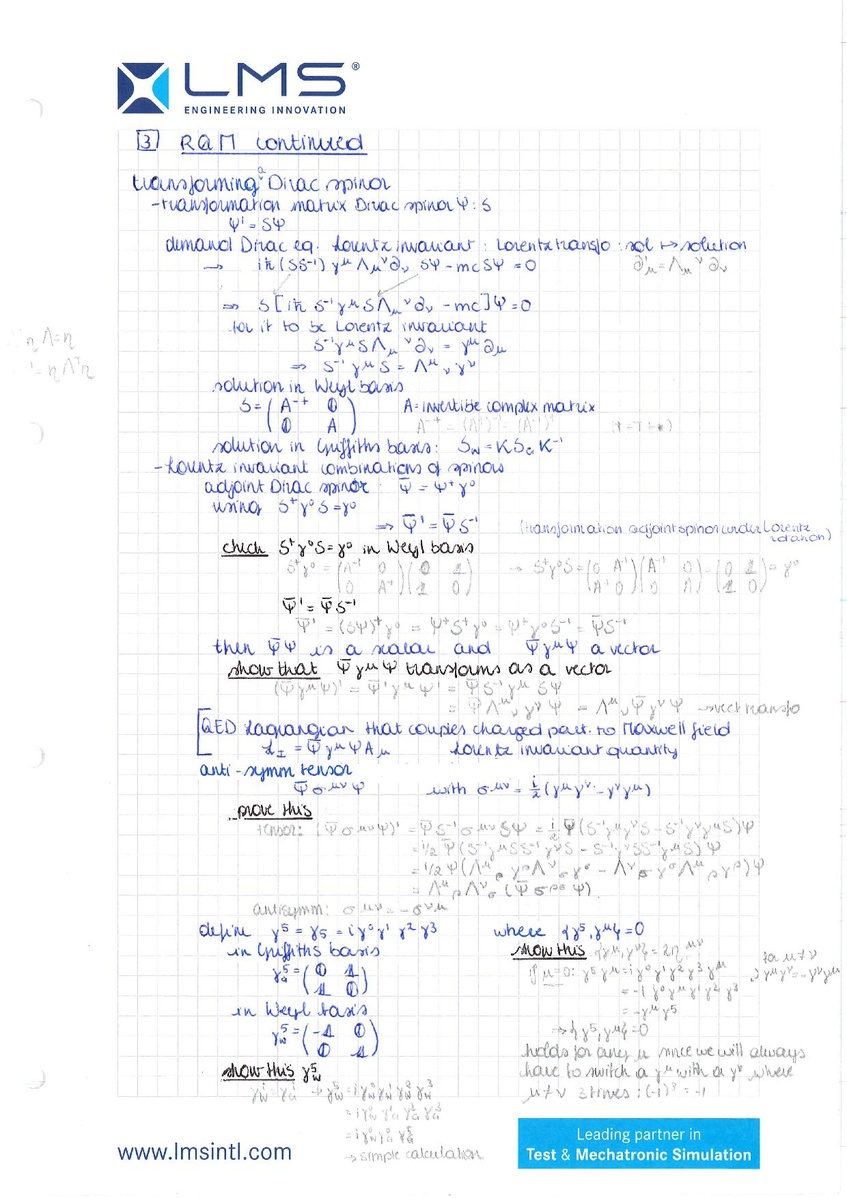 LMS®
ENGINEERING INNOVATION
3 RQM continued
transforming a Dirac spinor
- transformation matrix Dirac spinor Ψ : S
Ψ' = SΨ
demand Dirac eq. Lorentz invariant : Lorentz transfo : sol ↦ solution
→ iħ (SS⁻¹) γ^μ Λ_μ^ν ∂_ν SΨ - mc SΨ = 0
∂'_μ = Λ_μ^ν ∂_ν
⇒ S [iħ S⁻¹γ^μ S Λ_μ^ν ∂_ν - mc] Ψ = 0
for it to be Lorentz invariant
S⁻¹γ^μ S Λ_μ^ν ∂_ν = γ^μ ∂_μ
⇒ S⁻¹ γ^μ S = Λ^μ_ν γ^ν
solution in Weyl basis
S = (A⁻† 0
0 A) A = invertible complex matrix
solution in Griffiths basis: S_W = K S_G K⁻¹
- Lorentz invariant combinations of spinors
adjoint Dirac spinor: Ψ̄ = Ψ†γ⁰
using S†γ⁰S = γ⁰
⇒ Ψ̄' = Ψ̄ S⁻¹ (transformation adjoint spinor under Lorentz
rotation)
check S†γ⁰S = γ⁰ in Weyl basis
S†γ⁰ = (A⁻¹ 0 (0 1 → S†γ⁰S = (0 A⁻¹ (A⁻† 0 = (0 1 = γ⁰
0 A†) 1 0) A† 0) 0 A) 1 0)
Ψ̄' = Ψ̄ S⁻¹
Ψ̄' = (SΨ)†γ⁰ = Ψ†S†γ⁰ = Ψ†γ⁰S⁻¹ = Ψ̄S⁻¹
then Ψ̄Ψ is a scalar and Ψ̄γ^μΨ a vector
show that Ψ̄γ^μΨ transforms as a vector
(Ψ̄γ^μΨ)' = Ψ̄'γ^μΨ' = Ψ̄S⁻¹γ^μ SΨ
= Ψ̄ Λ^μ_ν γ^ν Ψ = Λ^μ_ν Ψ̄γ^νΨ → vect transfo
QED Lagrangian that couples charged part. to Maxwell field
ℒ_I = Ψ̄γ^μΨA_μ Lorentz invariant quantity
anti-symm tensor
Ψ̄σ^μνΨ with σ^μν = i/2 (γ^μγ^ν - γ^νγ^μ)
prove this
tensor: (Ψ̄σ^μνΨ)' = Ψ̄S⁻¹σ^μνSΨ = i/2 Ψ̄(S⁻¹γ^μγ^νS - S⁻¹γ^νγ^μS)Ψ
= i/2 Ψ̄(S⁻¹γ^μSS⁻¹γ^νS - S⁻¹γ^νSS⁻¹γ^μS)Ψ
= i/2 Ψ̄(Λ^μ_ρ γ^ρ Λ^ν_σ γ^σ - Λ^ν_σ γ^σ Λ^μ_ρ γ^ρ)Ψ
= Λ^μ_ρ Λ^ν_σ (Ψ̄σ^ρσΨ)
antisymm: σ^μν = -σ^νμ
define γ⁵ = γ₅ = iγ⁰γ¹γ²γ³ where {γ⁵, γ^μ} = 0
in Griffiths basis
γ⁵_G = (0 1
1 0)
in Weyl basis
γ⁵_W = (-1 0
0 1)
show this γ⁵_W
γ^i_W = γ^i_G → γ⁵_W = iγ⁰_Wγ¹_Wγ²_Wγ³_W
= iγ⁰_W γ¹_G γ²_G γ³_G
= iγ⁰_Wγ⁰_G γ⁵_G
→ simple calculation
show this {γ^μ, γ^ν} = 2η^μν
for μ≠ν
γ^μγ^ν = -γ^νγ^μ
if μ=0: γ⁵γ^μ = iγ⁰γ¹γ²γ³γ^μ
= -iγ⁰γ^μγ¹γ²γ³
= -γ^μγ⁵
⇒ {γ⁵, γ^μ} = 0
holds for any μ since we will always
have to switch a γ^μ with a γ^ν where
μ≠ν 3 times : (-1)³ = -1
www.lmsintl.com
Leading partner in
Test & Mechatronic Simulation